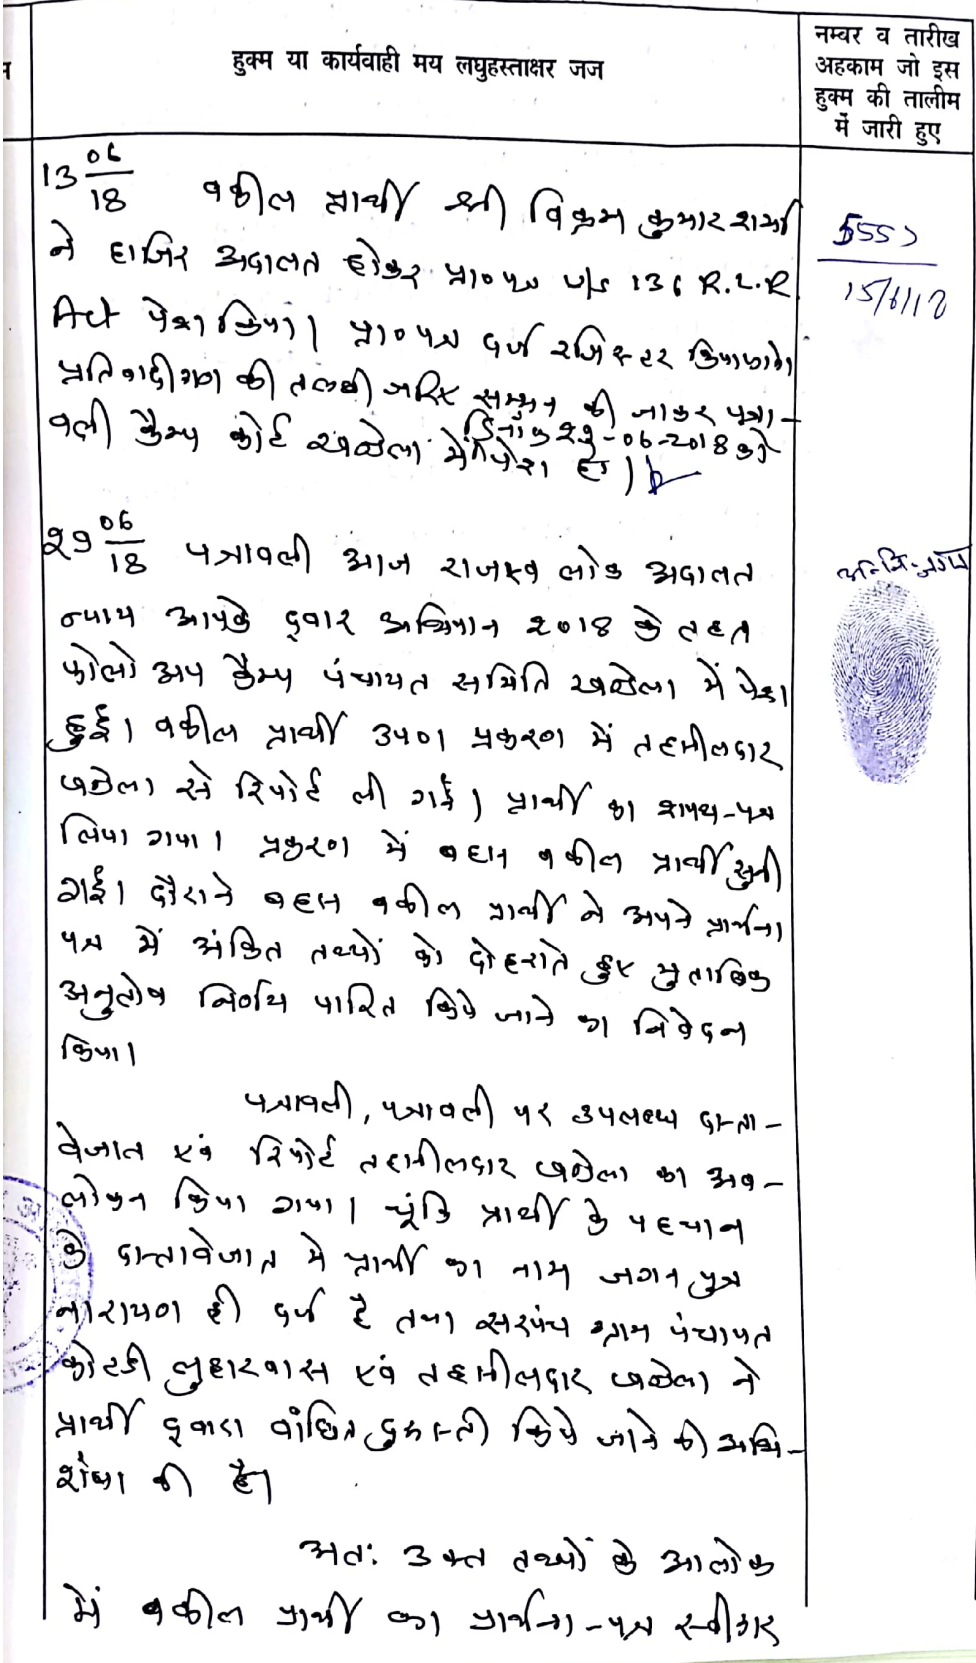 हुक्म या कार्यवाही मय लघुहस्ताक्षर जज
नम्बर व तारीख
अहकाम जो इस
हुक्म की तालीम
में जारी हुए
13 06/18 वकील प्रार्थी श्री विक्रम कुमार शर्मा
ने हाजिर अदालत होकर प्रा०पत्र u/s 136 R.L.R
Act पेश किया। प्रा०पत्र दर्ज रजिस्टर किया जावे।
प्रतिवादीगण की तलबी जरिए सम्मन की जाकर पत्रा-
वली कैम्प कोर्ट खण्डेला में दिनांक 29-06-2018 को पेश हो।
15/6/18
29 06/18 पत्रावली आज राजस्व लोक अदालत
न्याय आपके द्वार अभियान 2018 के तहत
फोलो अप कैम्प पंचायत समिति खण्डेला में पेश
हुई। वकील प्रार्थी उप० प्रकरण में तहसीलदार
खण्डेला से रिपोर्ट ली गई। प्रार्थी का शपथ-पत्र
लिया गया। प्रकरण में बहस वकील प्रार्थी सुनी
गई। दौराने बहस वकील प्रार्थी ने अपने प्रार्थना
पत्र में अंकित तथ्यों को दोहराते हुए मुताबिक
अनुतोष निर्णय पारित किये जाने का निवेदन
किया।
पत्रावली, पत्रावली पर उपलब्ध दस्ता-
वेजात एवं रिपोर्ट तहसीलदार खण्डेला का अव-
लोकन किया गया। चूंकि प्रार्थी के पहचान
के दस्तावेजात में प्रार्थी का नाम जगन पुत्र
नारायण ही दर्ज है तथा सरपंच ग्राम पंचायत
कोटडी लुहारवास एवं तहसीलदार खण्डेला ने
प्रार्थी द्वारा वांछित दुरूस्ती किये जाने की अभि-
शंषा की है।
अतः उक्त तथ्यों के आलोक
में वकील प्रार्थी का प्रार्थना-पत्र स्वीकार